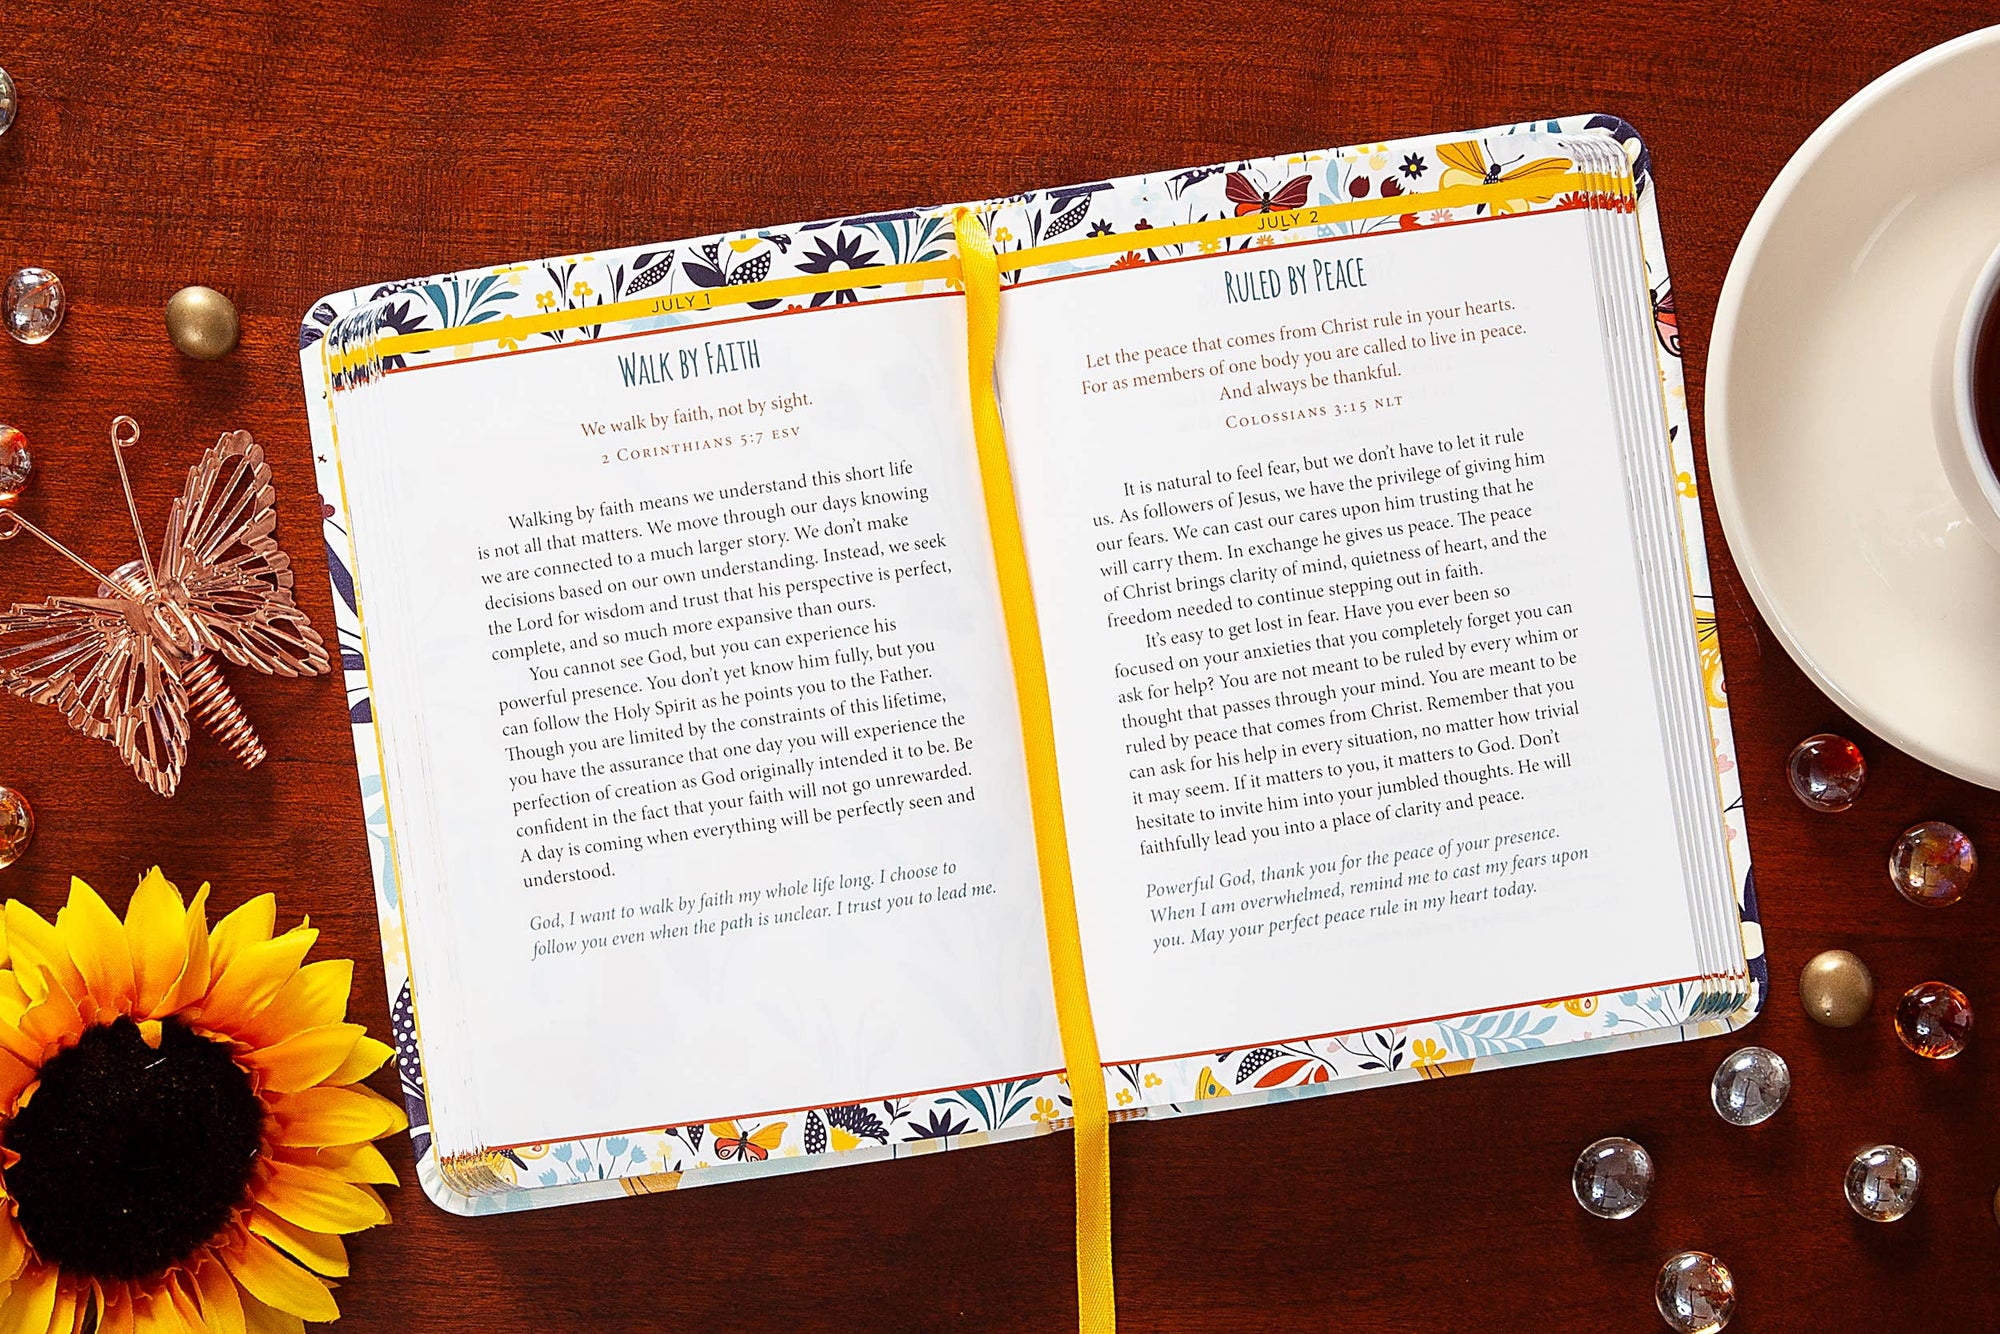 JULY 1
WALK BY FAITH
We walk by faith, not by sight.
2 CORINTHIANS 5:7 ESV
Walking by faith means we understand this short life
is not all that matters. We move through our days knowing
we are connected to a much larger story. We don't make
decisions based on our own understanding. Instead, we seek
the Lord for wisdom and trust that his perspective is perfect,
complete, and so much more expansive than ours.
You cannot see God, but you can experience his
powerful presence. You don't yet know him fully, but you
can follow the Holy Spirit as he points you to the Father.
Though you are limited by the constraints of this lifetime,
you have the assurance that one day you will experience the
perfection of creation as God originally intended it to be. Be
confident in the fact that your faith will not go unrewarded.
A day is coming when everything will be perfectly seen and
understood.
God, I want to walk by faith my whole life long. I choose to
follow you even when the path is unclear. I trust you to lead me.
JULY 2
RULED BY PEACE
Let the peace that comes from Christ rule in your hearts.
For as members of one body you are called to live in peace.
And always be thankful.
COLOSSIANS 3:15 NLT
It is natural to feel fear, but we don't have to let it rule
us. As followers of Jesus, we have the privilege of giving him
our fears. We can cast our cares upon him trusting that he
will carry them. In exchange he gives us peace. The peace
of Christ brings clarity of mind, quietness of heart, and the
freedom needed to continue stepping out in faith.
It's easy to get lost in fear. Have you ever been so
focused on your anxieties that you completely forget you can
ask for help? You are not meant to be ruled by every whim or
thought that passes through your mind. You are meant to be
ruled by peace that comes from Christ. Remember that you
can ask for his help in every situation, no matter how trivial
it may seem. If it matters to you, it matters to God. Don't
hesitate to invite him into your jumbled thoughts. He will
faithfully lead you into a place of clarity and peace.
Powerful God, thank you for the peace of your presence.
When I am overwhelmed, remind me to cast my fears upon
you. May your perfect peace rule in my heart today.